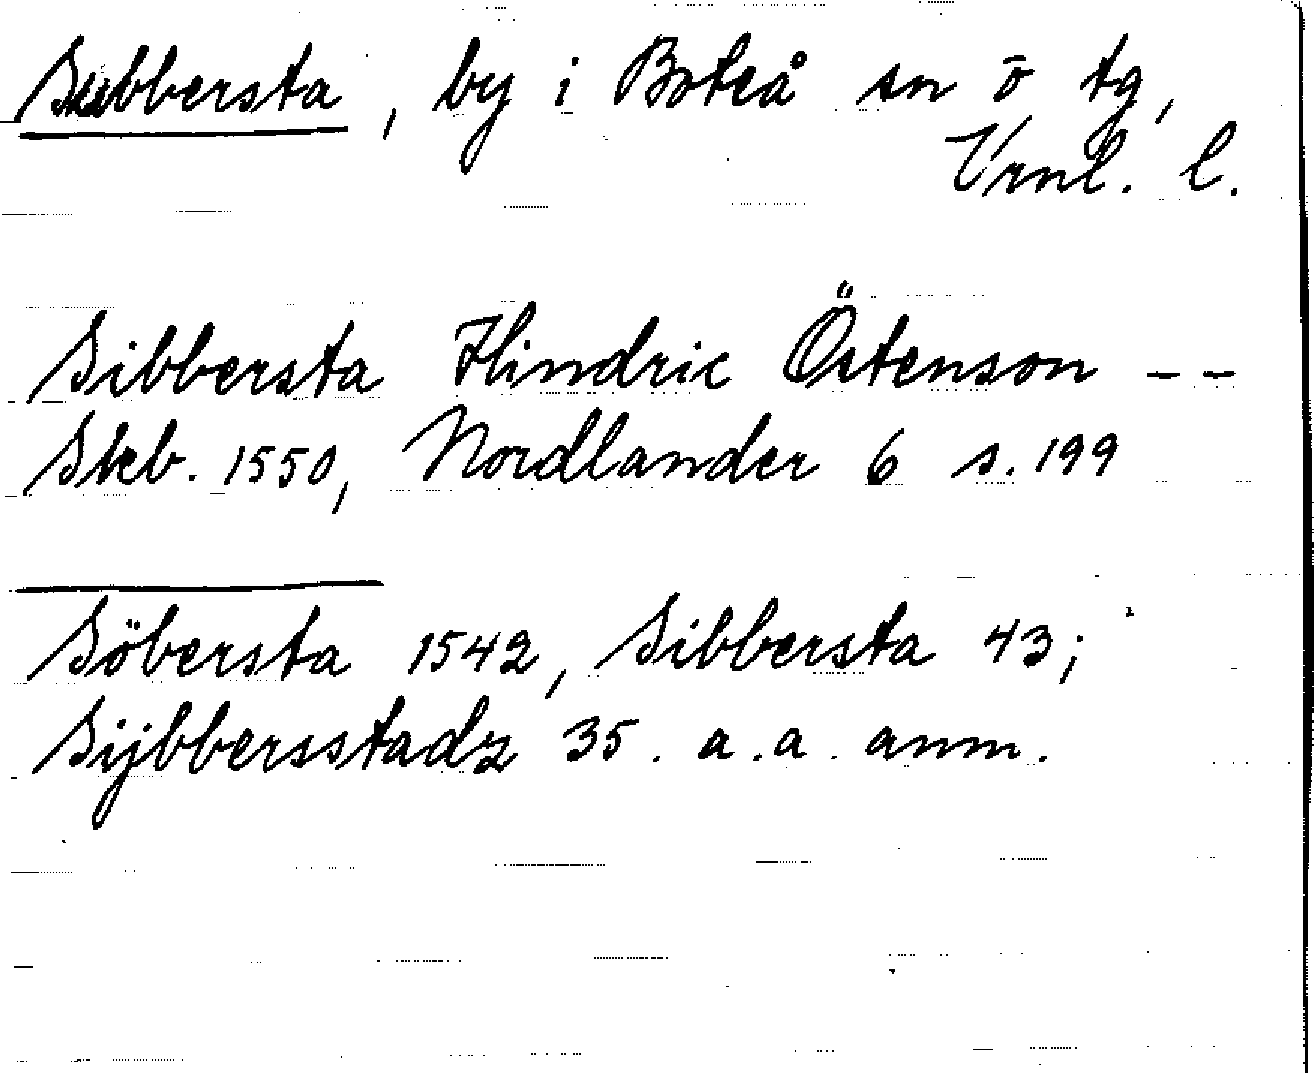 Subbersta, by i Boteå sn ö tg,
Vrnl. l.
Sibbersta Hindric Östenson --
Skb. 1550, Nordlander 6 s. 199
Söbersta 1542, Sibbersta 43;
Sijbbersstadz 35. a.a. anm.